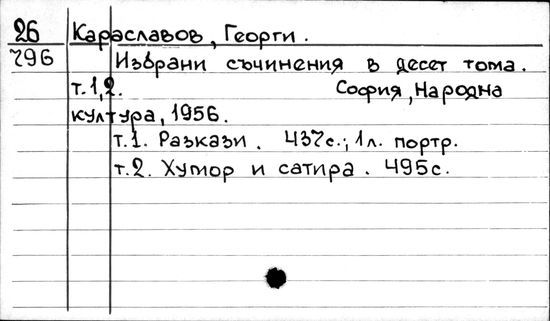 26 Караславов, Георги.
796 Избрани съчинения в десет тома.
т.1,2. София, Народна
култура, 1956.
т.1. Разкази. 437с.; 1л. портр.
т.2. Хумор и сатира. 495с.